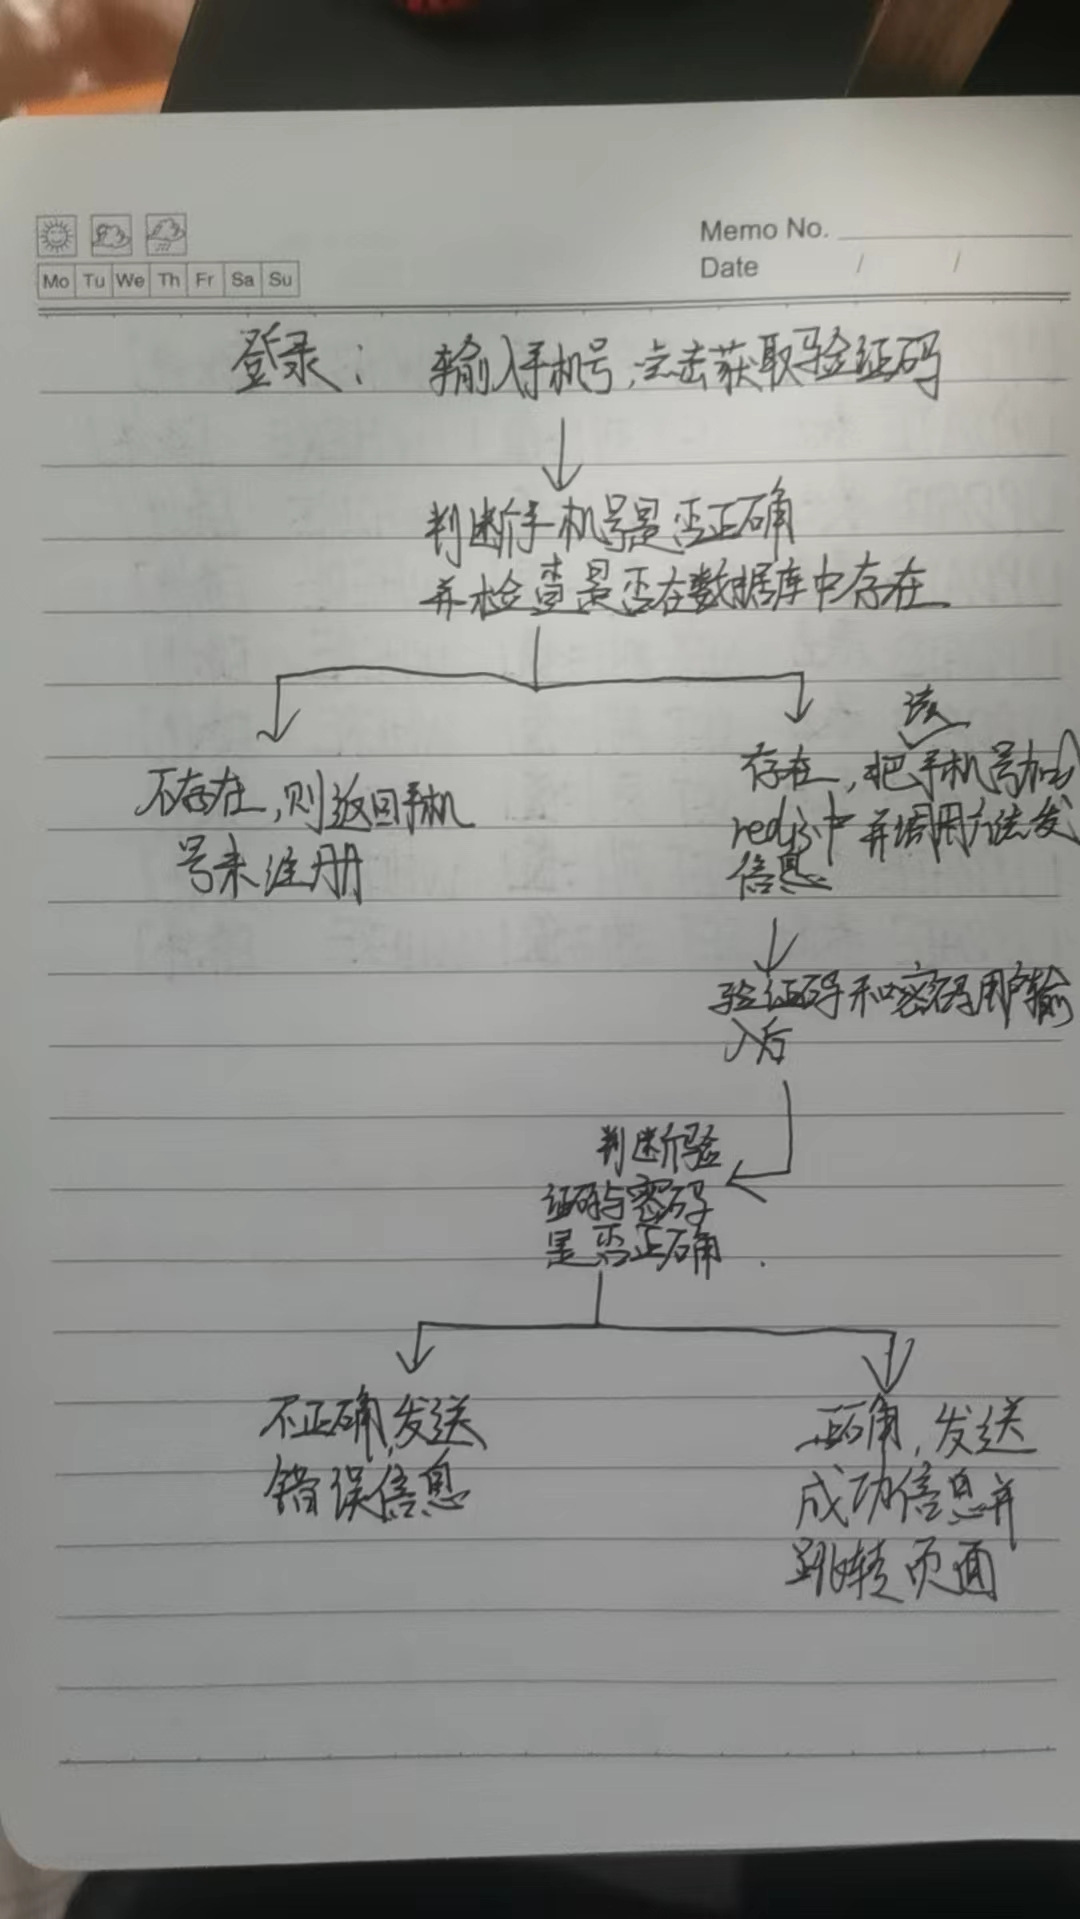 Memo No.
Mo Tu We Th Fr Sa Su
Date / /
登录: 输入手机号,点击获取验证码
判断手机号是否正确
并检查是否在数据库中存在
不存在,则返回手机
号未注册
该
存在,把手机号加
redis中并调用方法发
信息
验证码和密码用户输
入后
判断验
证码与密码
是否正确
不正确,发送
错误信息
正确,发送
成功信息并
跳转页面